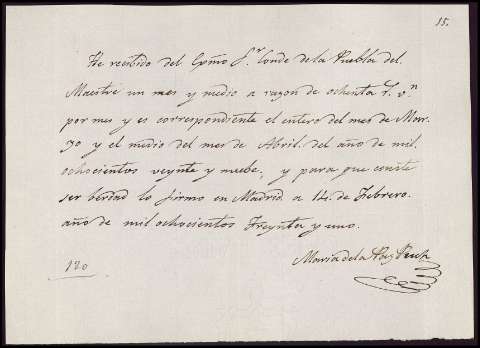 15.
He recibido del Exmo Sr. Conde de la Puebla del
Maestre un mes y medio a razon de ochenta r. vn
por mes y es correspondiente el entero del mes de Mar-
zo y el medio del mes de Abril del año de mil
ochocientos veynte y nuebe, y para que conste
ser berdad lo firmo en Madrid a 14 de Febrero.
año de mil ochocientos treynta y uno.
Maria de la Paz
120